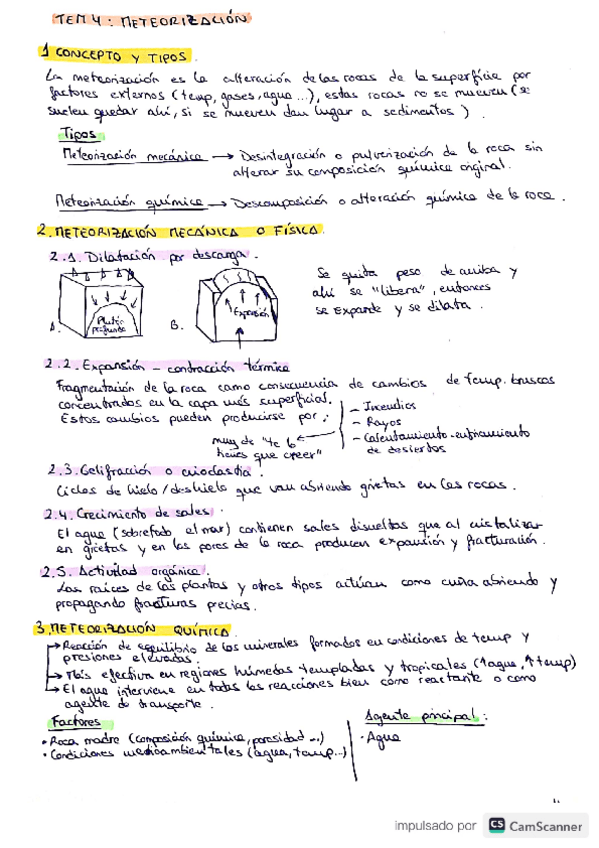 TEMA 4: METEORIZACIÓN
1 CONCEPTO Y TIPOS.
La meteorización es la alteración de las rocas de la superficie por
factores externos (temp, gases, agua ...), estas rocas no se mueven (se
suelen quedar ahí, si se mueven dan lugar a sedimentos).
Tipos
Meteorización mecánica → Desintegración o pulverización de la roca sin
alterar su composición química original.
Meteorización química → Descomposición o alteración química de la roca.
2. METEORIZACIÓN MECÁNICA O FÍSICA.
2.1. Dilatación por descarga.
Se quita peso de arriba y
ahí se "libera", entonces
se expande y se dilata.
Plutón
profundo
A.
Expansión
B.
2.2. Expansión - contracción térmica
Fragmentación de la roca como consecuencia de cambios de temp. bruscos
concentrados en la capa más superficial.
Estos cambios pueden producirse por:
- Incendios
- Rayos
- Calentamiento-enfriamiento
de desiertos
muy de "te lo
tienes que creer"
2.3. Gelifracción o crioclastia.
Ciclos de hielo/deshielo que van abriendo grietas en las rocas.
2.4. Crecimiento de sales.
El agua (sobretodo el mar) contienen sales disueltas que al cristalizar
en grietas y en los poros de la roca producen expansión y fracturación.
2.5. Actividad orgánica.
Las raíces de las plantas y otros tipos actúan como cuña abriendo y
propagando fracturas previas.
3. METEORIZACIÓN QUÍMICA.
→ Reacción de equilibrio de los minerales formados en condiciones de temp y
presiones elevadas.
→ Más efectiva en regiones húmedas templadas y tropicales (↑agua, ↑temp)
→ El agua interviene en todas las reacciones bien como reactante o como
agente de transporte.
Factores
• Roca madre (composición química, porosidad ...)
• Condiciones medioambientales (agua, temp...)
Agente principal:
· Agua
impulsado por CS CamScanner